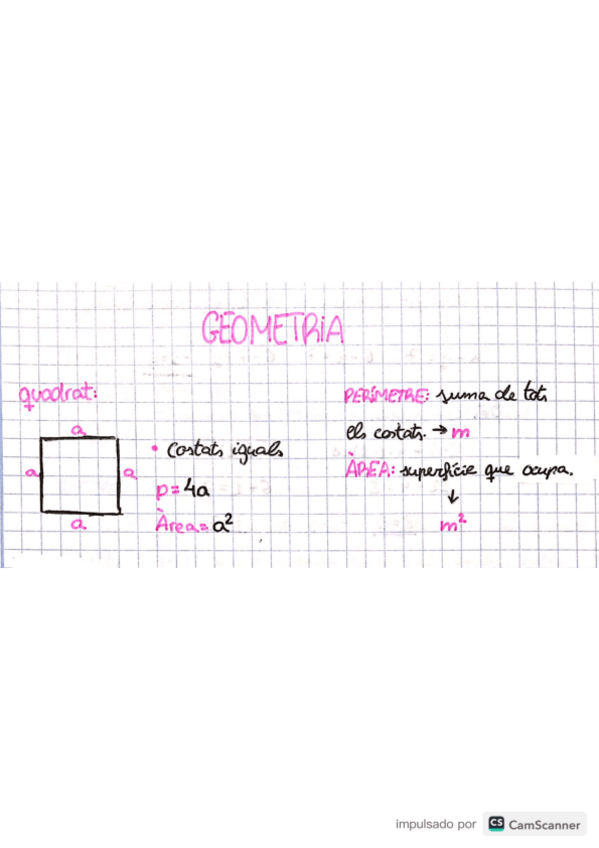 GEOMETRIA
quadrat:
a
a
a
a
• Costats iguals
p = 4a
Àrea = a²
PERÍMETRE: suma de tots
els costats. → m
ÀREA: superfície que ocupa.
↓
m²
impulsado por CS CamScanner